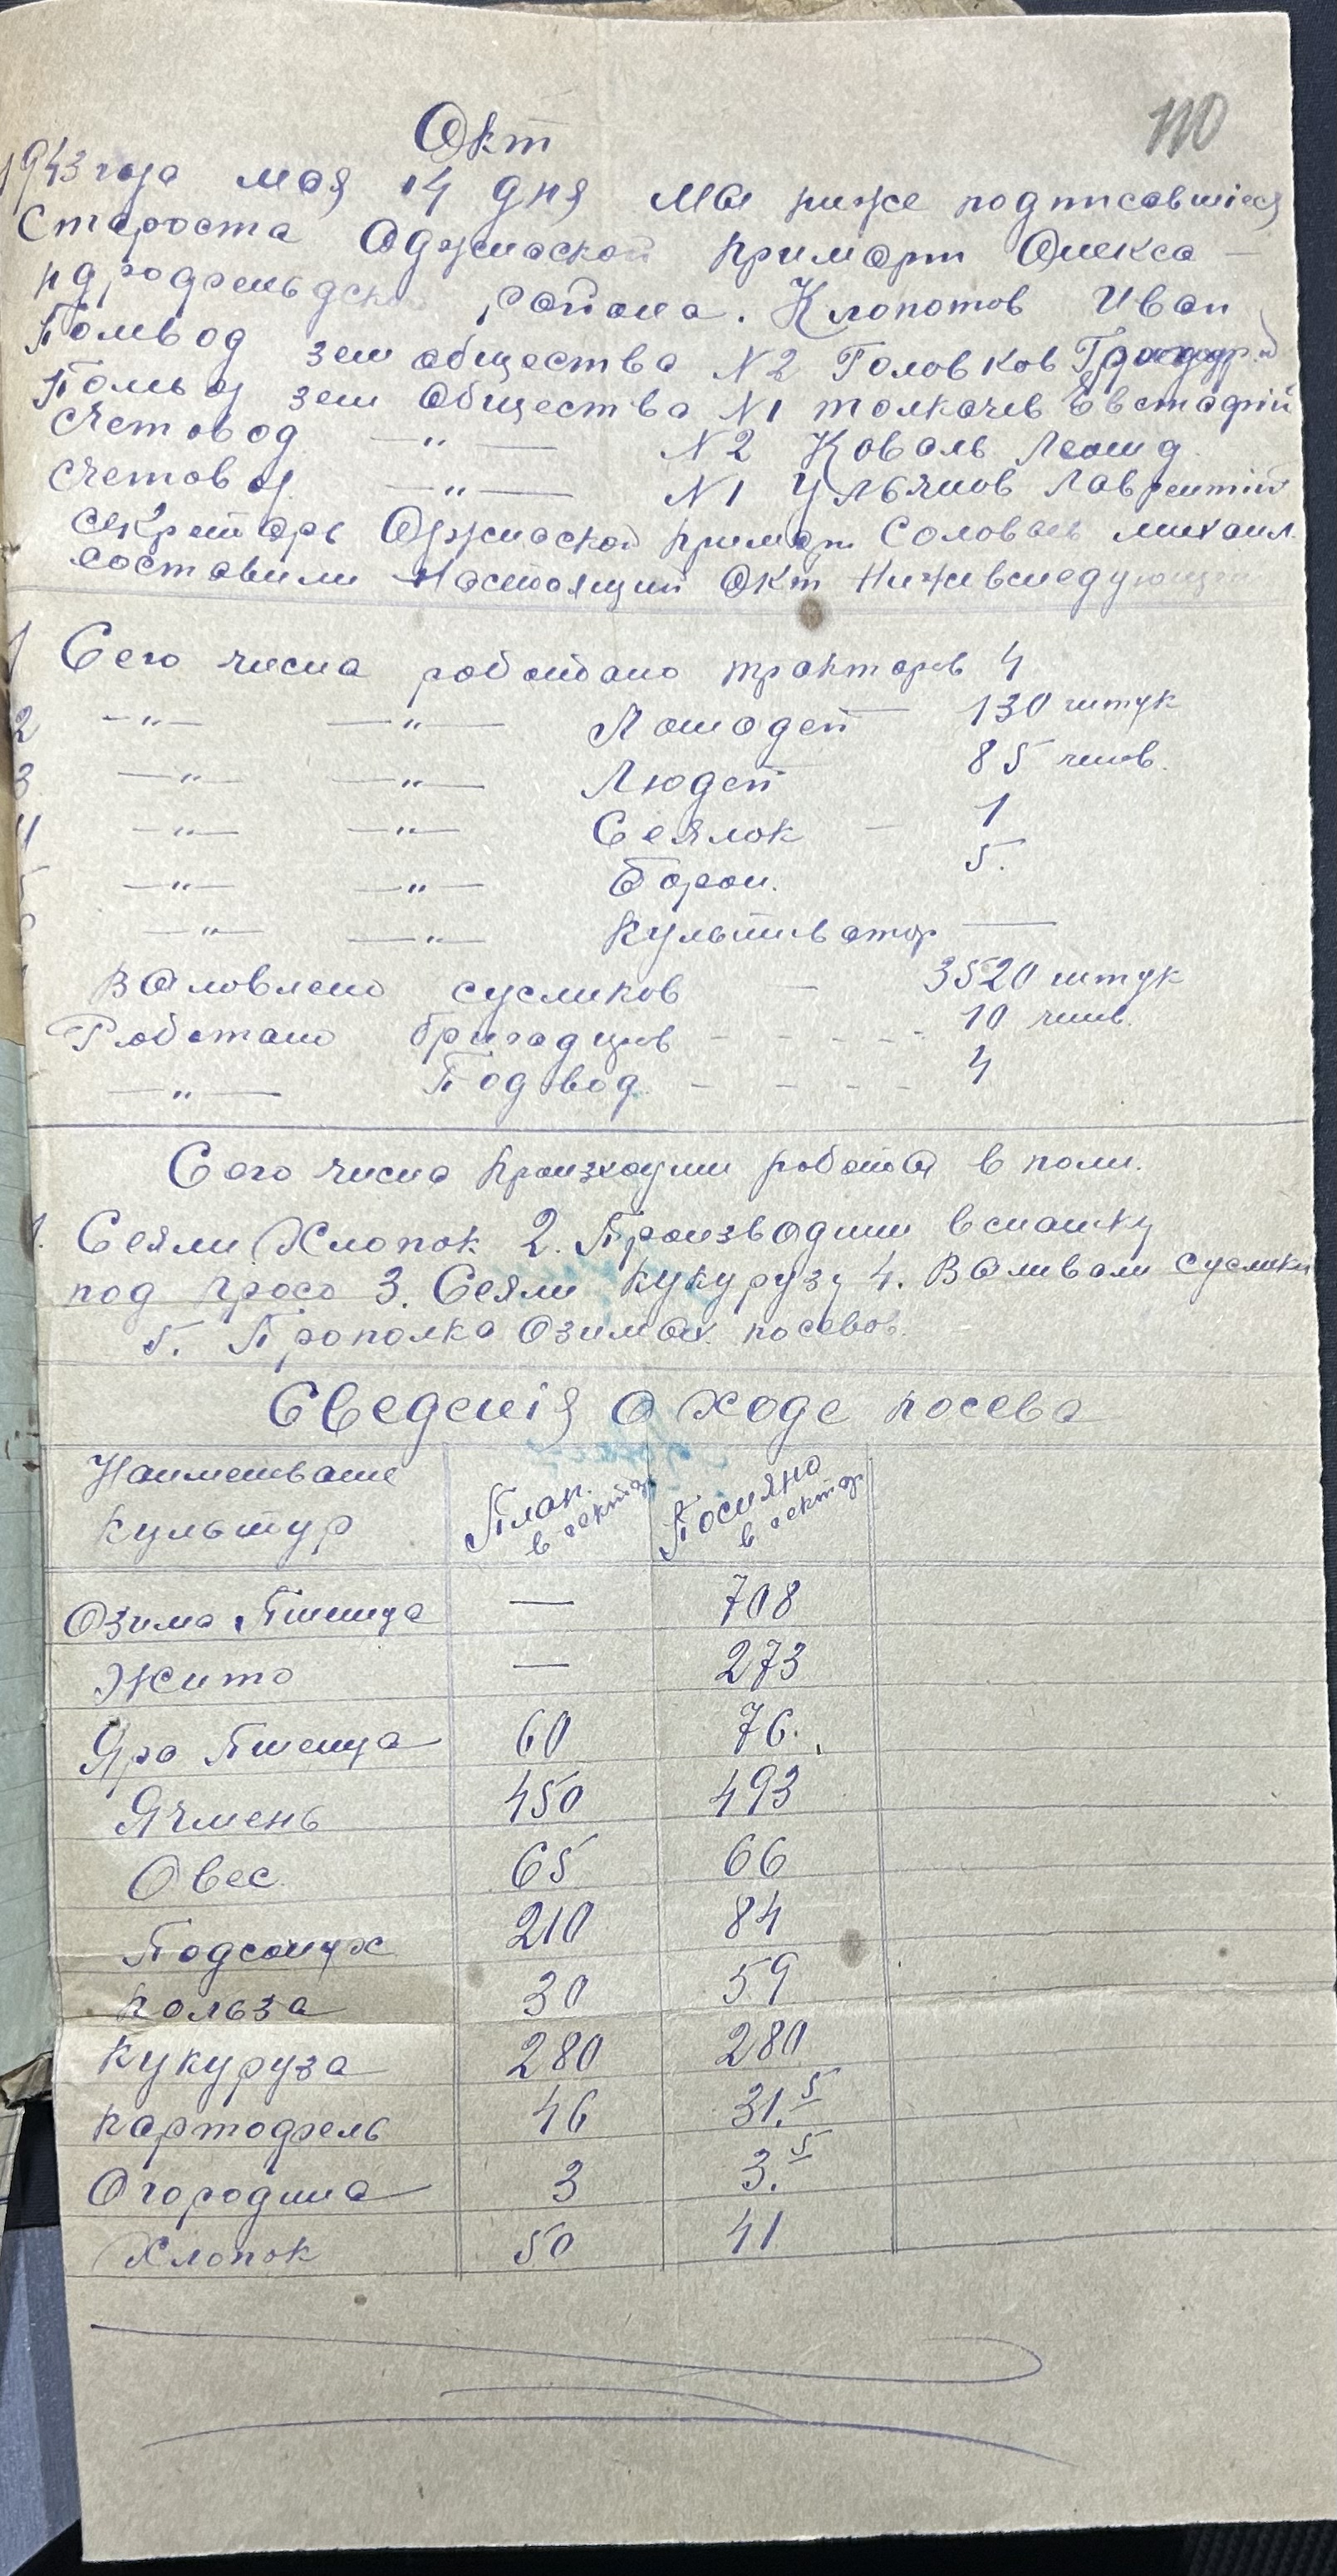 110
Окт
1943 года мая 14 дня Мы ниже подписавшіеся
Староста Аджиаской Примарт Олекса-
ндродфельдско района. Клопотов Иван
Помвод зем общества N2 Головков
Помвод зем Общества N1 толкачев Евстафий
Счетовод —"— N2 Коваль Леонид
Счетовод —"— N1 Ульянов Лаврентий
Секретарь Аджиаской примарт Соловьев михаил.
составили Настоящий Окт Нижеследующем
1 Сего числа работало тракторов 4
2 —"— —"— Лошадей 130 штук
3 —"— —"— Людей 85 чилов.
4 —"— —"— Сеялок — 1
5 —"— —"— Борон. 5.
6 —"— —"— Культиватор —
Выловлено сусликов — 3520 штук
Роботало бригадиров - - - - - 10 чилов.
—"— Подвод - - - - 4
Сего числа Происходили роботы в поли.
1. Сеяли Хлопок 2. Производили вспашку
под просо 3. Сеяли кукурузу 4. Выливали суслики
5. Прополка Озимых посевов.
Сведенія о ходе посева
Наименование культур План. в гектар Посияно в гектар
Озима Пшеница — 708
Жито — 273
Яра Пшеница 60 76.
Ячмень 450 493
Овес 65 66
Подсолнух 210 84
Кользa 30 59
Кукуруза 280 280
Картофель 46 31.5
Огородина 3 3.5
Хлопок 50 41